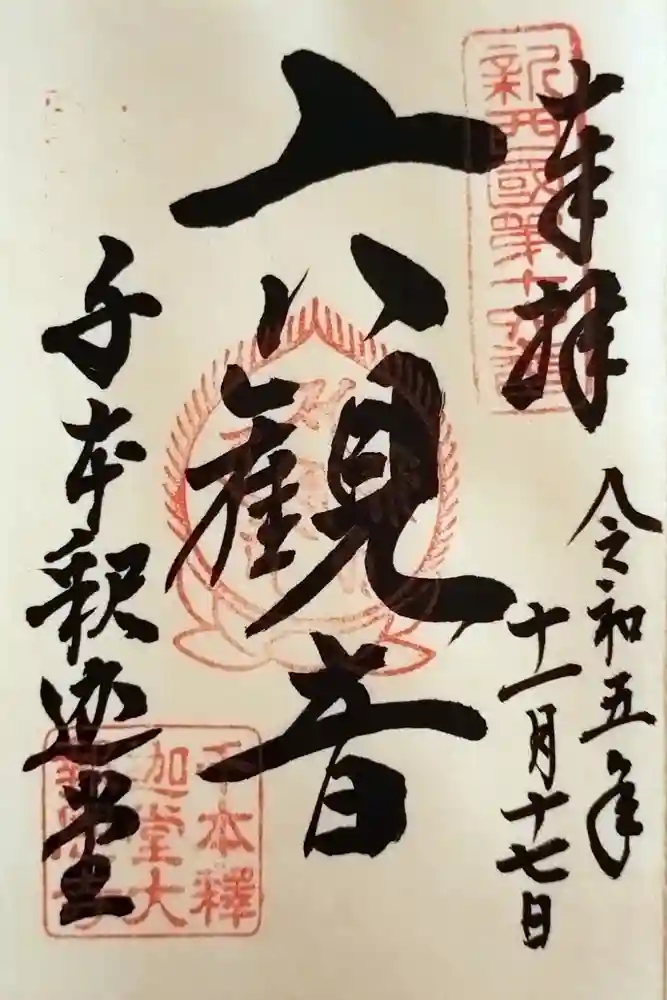 奉拝
新西國第十
令和五年
十一月十七日
六観音
千本釈迦堂
千本釋
迦堂大